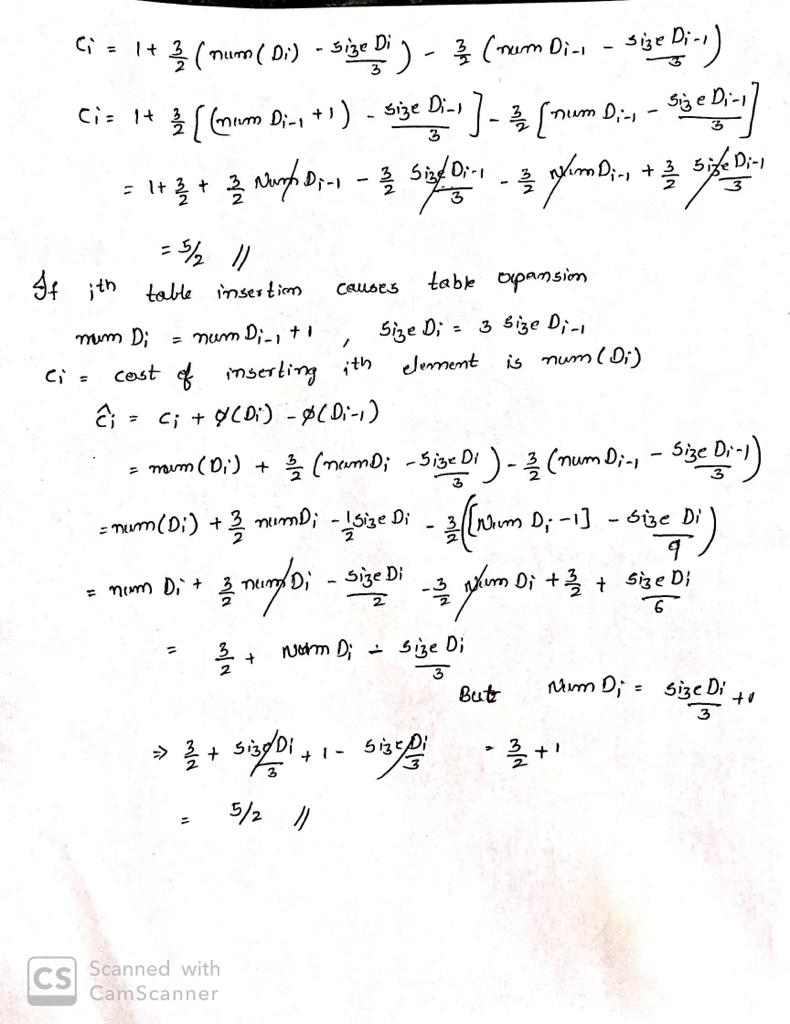 Ci = 1 + 3/2 (num(Di) - size Di/3) - 3/2 (num Di-1 - size Di-1/3)
Ci = 1 + 3/2 [(num Di-1 + 1) - size Di-1/3] - 3/2 [num Di-1 - size Di-1/3]
= 1 + 3/2 + 3/2 Num Di-1 - 3/2 size Di-1/3 - 3/2 Num Di-1 + 3/2 size Di-1/3
= 5/2 //
If ith table insertion causes table expansion
num Di = num Di-1 + 1 , size Di = 3 size Di-1
Ci = cost of inserting ith element is num(Di)
Ĉi = Ci + φ(Di) - φ(Di-1)
= num(Di) + 3/2 (num Di - size Di/3) - 3/2 (num Di-1 - size Di-1/3)
= num(Di) + 3/2 num Di - 1/2 size Di - 3/2 ([Num Di - 1] - size Di/9)
= num Di + 3/2 num Di - size Di/2 - 3/2 Num Di + 3/2 + size Di/6
= 3/2 + Num Di - size Di/3
But Num Di = size Di/3 + 1
⇒ 3/2 + size Di/3 + 1 - size Di/3 = 3/2 + 1
= 5/2 //
CS Scanned with
CamScanner